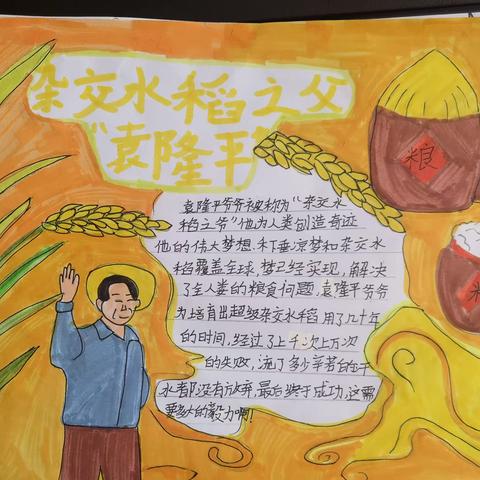 杂交水稻之父
"袁隆平"
粮
米
袁隆平爷爷被称为"杂交水
稻之爷"他为人类创造奇迹
他的伟大梦想.禾下乘凉梦和杂交水
稻覆盖全球,梦已经实现,解决
了全人类的粮食问题.袁隆平爷爷
为培育出超级杂交水稻用了几十年
的时间,经过了上千次上万次
的失败,流了多少辛苦
水都没有放弃.最后终于成功.这需
要多大的毅力啊!